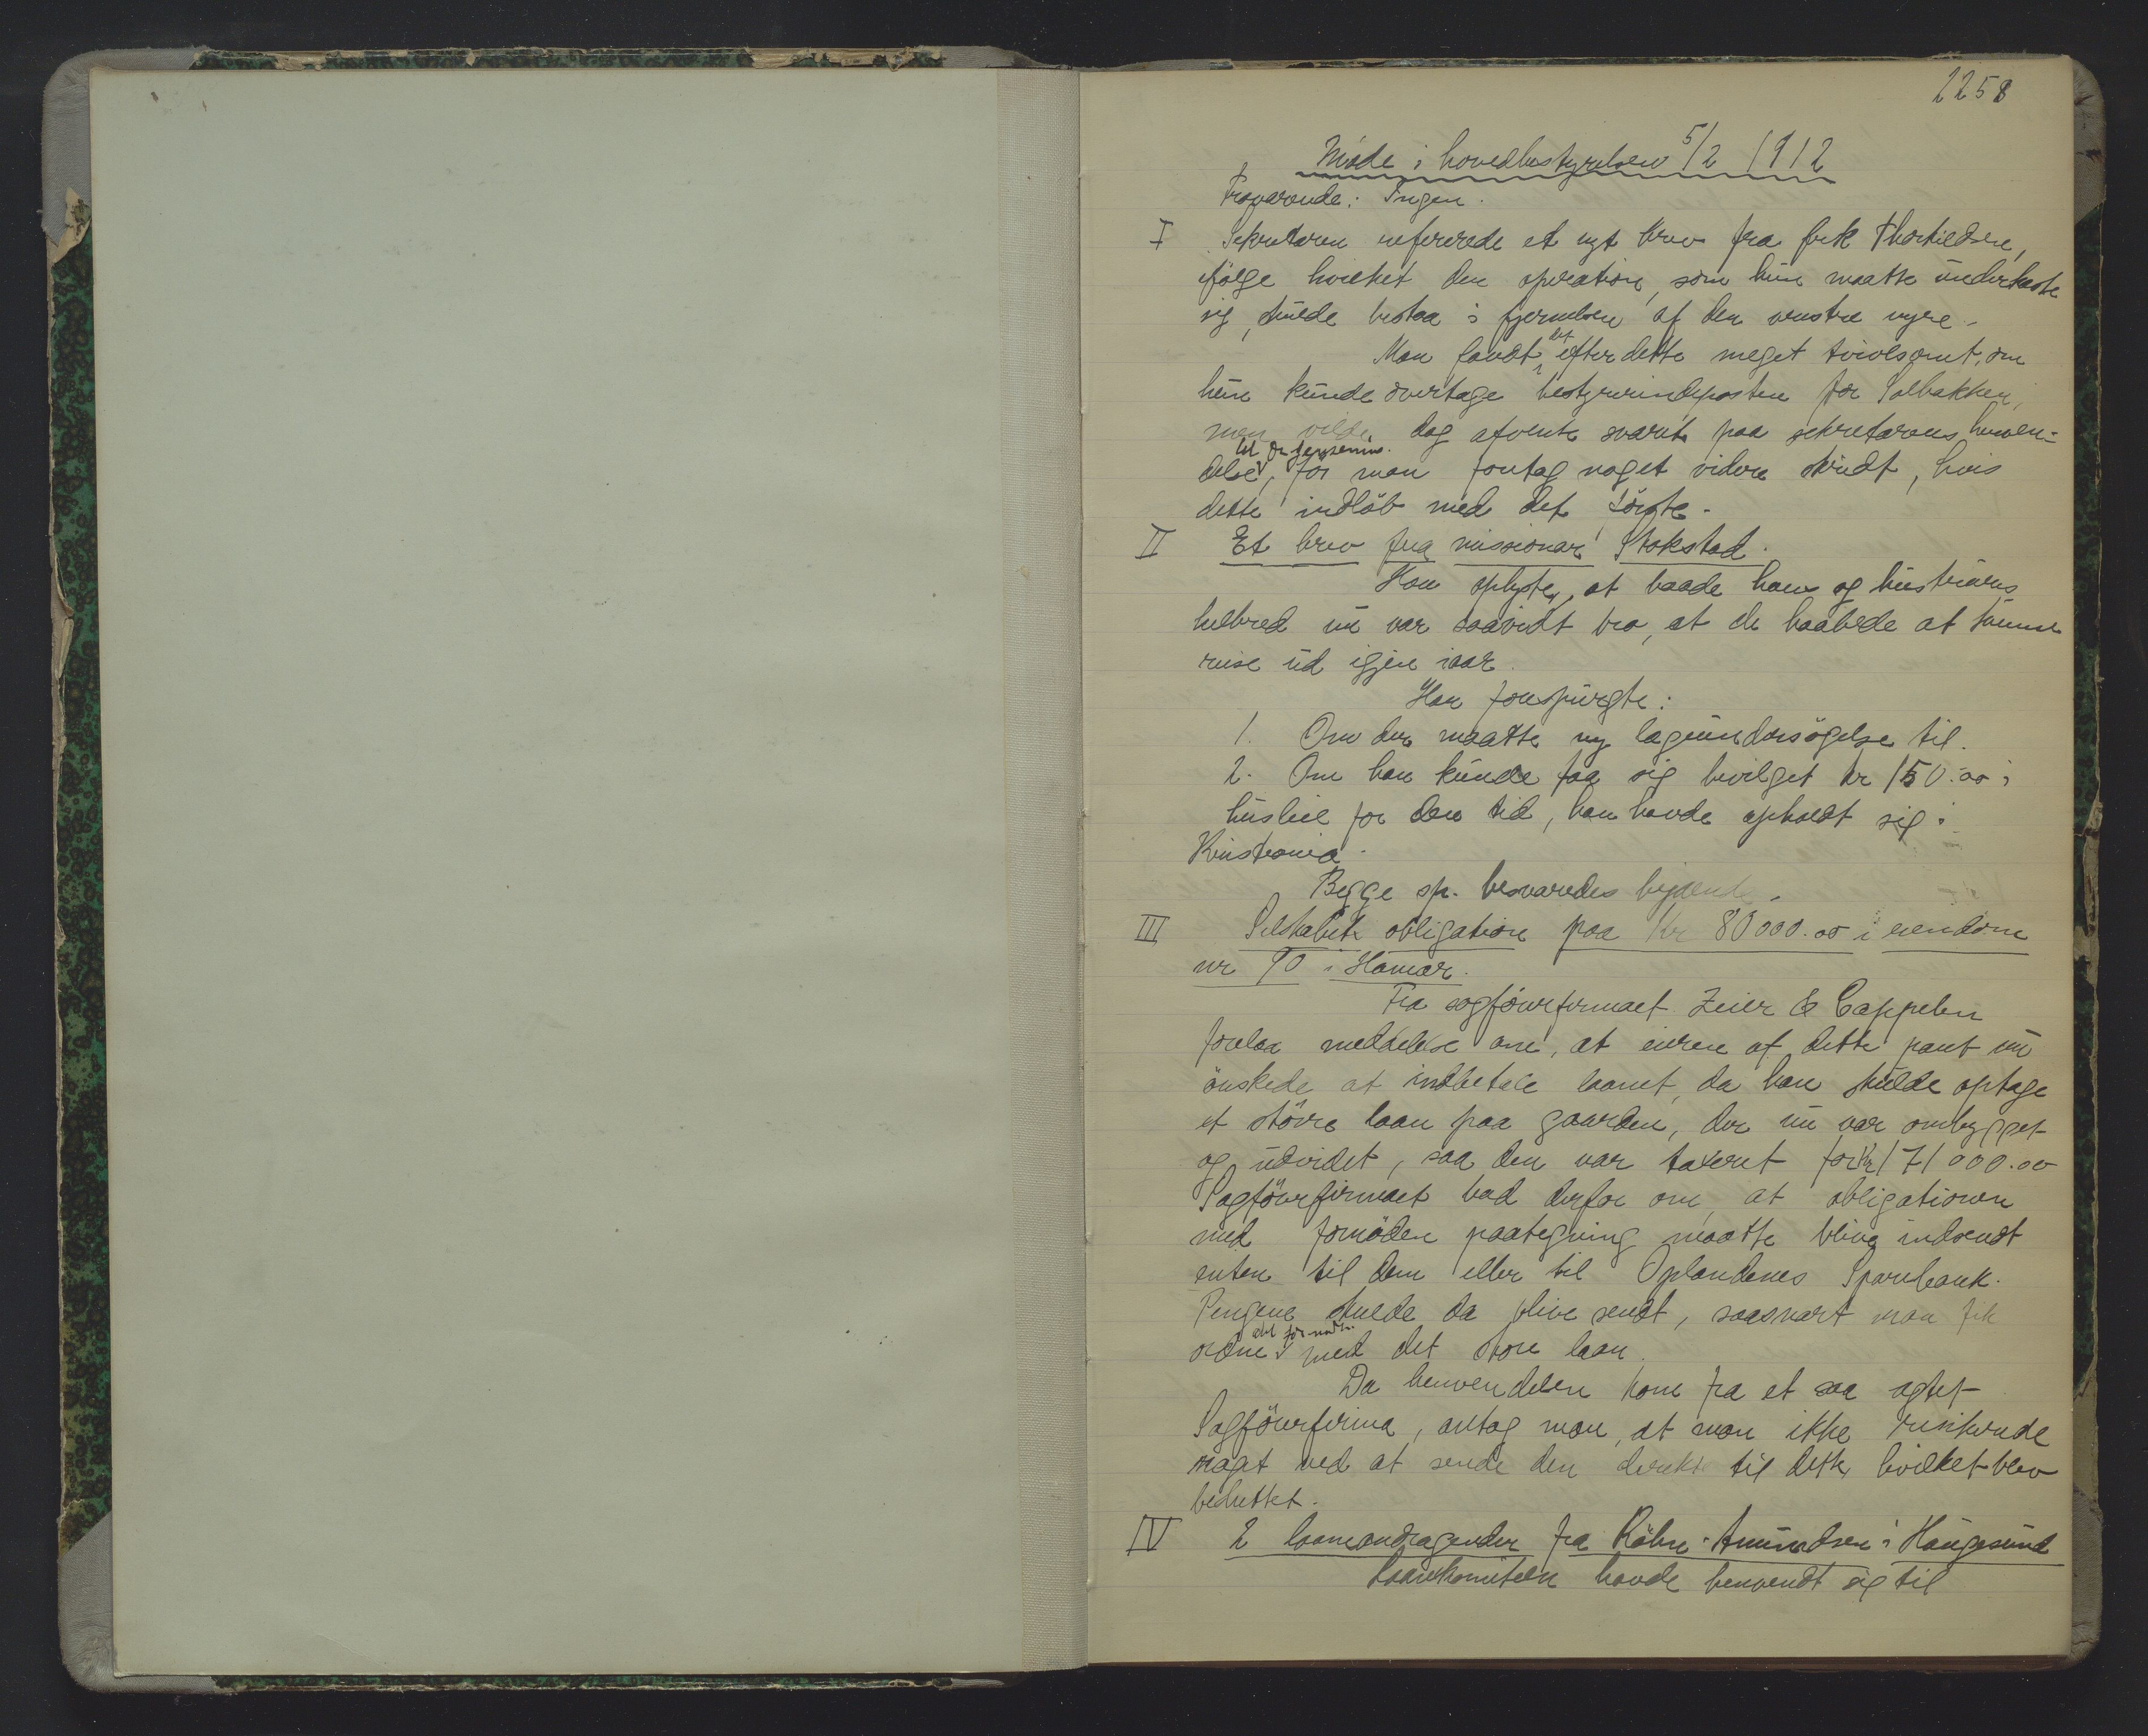 2258
Møde i hovedbestyrelsen 5/2 1912
Fraværende: Ingen.
I Sekretæren refererede et nyt brev fra frk Thorkildsen,
ifølge hvilket den operation, som hun maatte underkaste
sig, skulde bestaa i fjernelsen af den venstre nyre.
Man fandt det efter dette meget tvivlsomt, om
hun kunde overtage bestyrerindeposten for Solbakken,
men vilde dog afvente svaret paa sekretærens henven-
til dr
delse, før man foretog noget videre skridt, hvis
dette indløb med det første.
II Et brev fra missionær Stokstad.
Han oplyste, at baade hans og hustruens
helbred nu var saavidt bra, at de haabede at kunne
reise ud igjen iaar.
Han forespurgte:
1. Om der maatte ny lægeundersøgelse til.
2. Om han kunde faa sig bevilget kr 150.00 i
husleie for den tid, han havde opholdt sig i
Kristiania.
Begge sp. besvaredes bejaende.
III Selskabets obligation paa kr 80000.00 i eiendom
nr 90 i Hamar.
Fra sagførerfirmaet Zeier & Cappelen
forelaa meddelelse om, at eieren af dette pant nu
ønskede at indbetale laanet, da han skulde optage
et større laan paa gaarden, der nu var ombygget
og udvidet, saa den var taxeret for kr 171000.00
Sagførerfirmaet bad derfor om, at obligationen
med fornøden paategning maatte blive indsendt
enten til dem eller til Oplandenes Sparebank.
Pengene skulde da blive sendt, saasnart man fik
det fornødne
ordnet med det store laan.
Da henvendelsen kom fra et saa agtet
Sagførerfirma, antog man, at man ikke risikerede
noget ved at sende den direkte til dette, hvilket blev
besluttet.
IV 2 laaneandragender fra Røhne-Amundsen i Haugesund
Laanekomiteen havde henvendt sig til